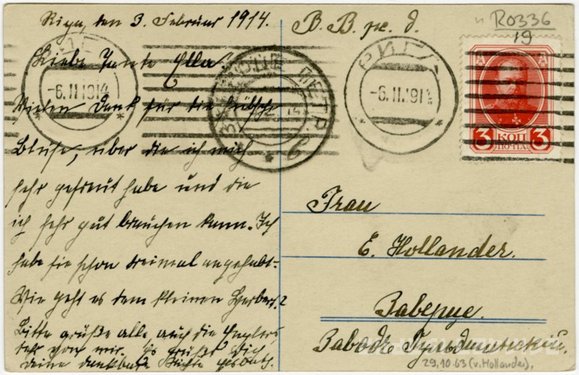 Riga, den 3. Februar 1914.
Liebe Tante Ella!
Vielen Dank für die hübsche
Bluse, über die ich mich
sehr gefreut habe und die
ich sehr gut brauchen kann. Ich
habe sie schon dreimal angehabt.
Wie geht es dem kleinen Herbert?
Bitte grüße alle auch die
von mir. Es grüßt Dich
Deine dankbare Nichte
В. В. ж. д.
R0336
19
РИГА
-6.II.1914
РИГА
-6.II.1914
3 КОП 3
ПОЧТА
Frau
E. Hollander.
Заверце.
Заводъ
29.10.63 (v. Hollander).